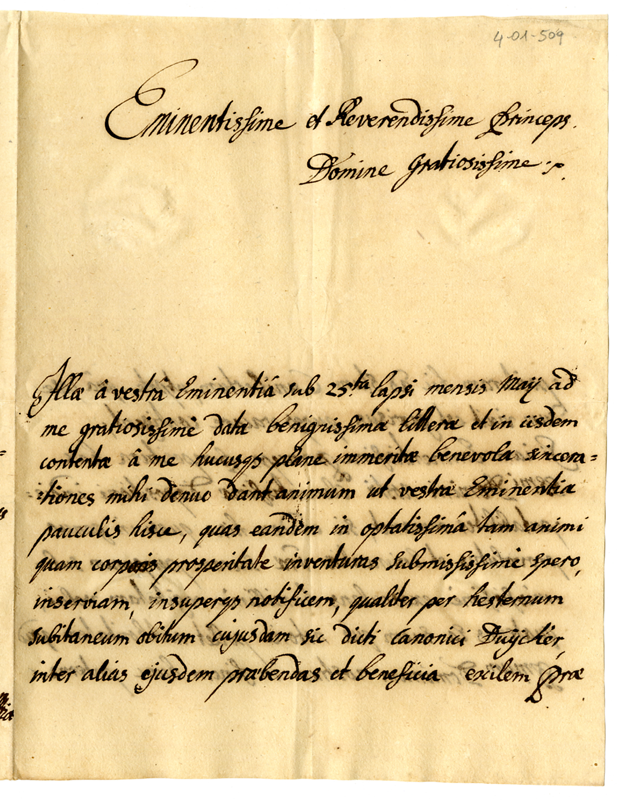 4-01-509
Eminentissime et Reverendissime Princeps.
Domine Gratiosissime
Illæ â vestrâ Eminentiâ sub 25ta lapsi mensis May ad
me gratiosissimè data benignissimæ litteræ et in iisdem
contentæ â me hucusqs plane immeritæ benevolæ sincera=
tiones mihi denuo dant animum ut vestræ Eminentiæ
pauculis hisce, quas eandem in optatissimâ tam animi
quam corporis prosperitate inventuras submississimè spero,
inserviam, insuperqs notificem, qualiter per hesternum
subitaneum obitum cujusdam sic dicti canonici Duÿcker
inter alias ejusdem præbendas et beneficia exilem Præ